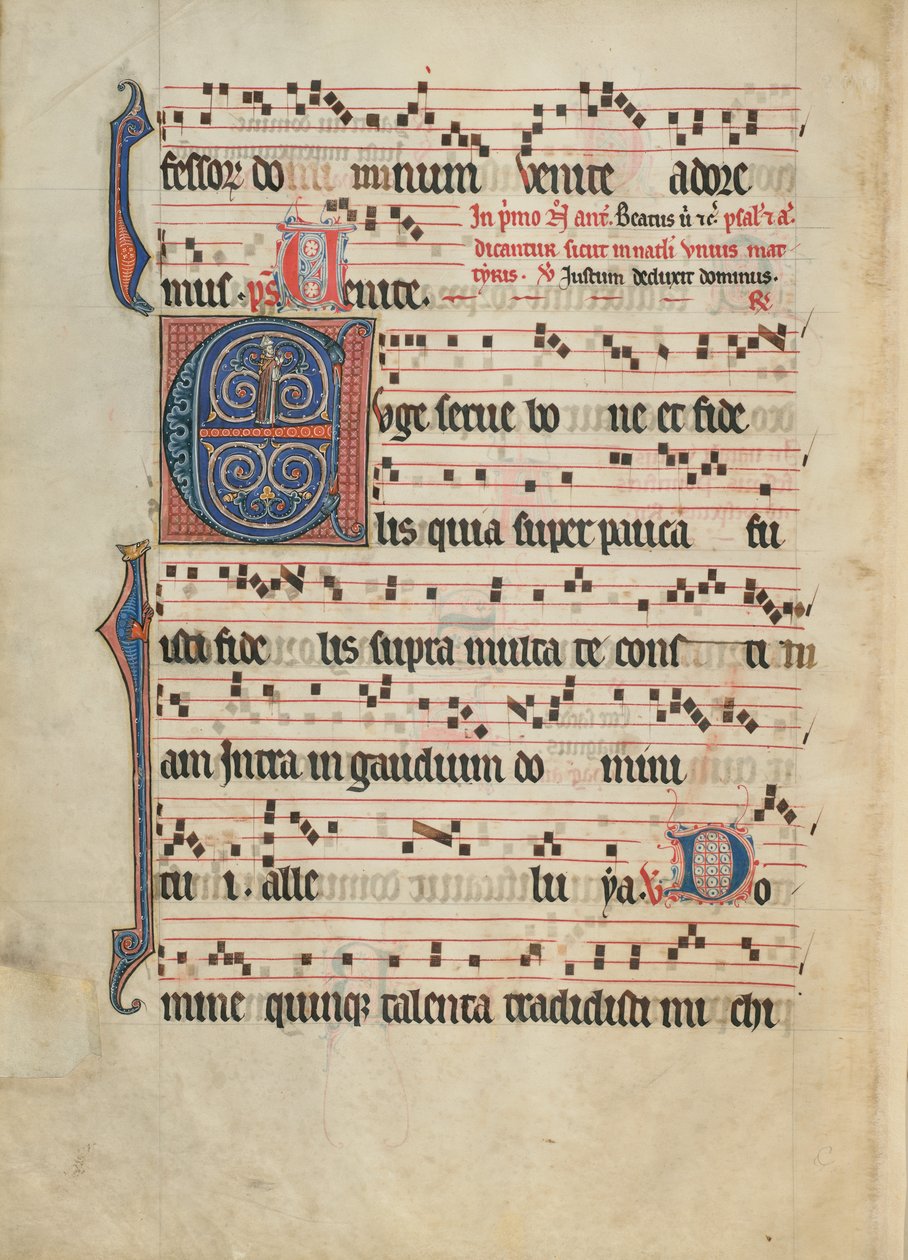 fessorꝝ do mi minum venite adore
In p̄mo N̄ ant̄. Beatus ū ⁊c̄ psal̄ ⁊ a᷑.
dicantur sicut in natłi vnius mar
tyris. ℣ Justum deduxit dominus.
mus. ps̄ Uenite. ℟
Euge serue bo ne et fide
lis quia super pauca fu
isti fide lis supra multa te cons ti tu
am Jntra in gaudium do mini
tu i. alle lu ya. ℣ Do
mine quinqꝫ talenta tradidisti mi chi